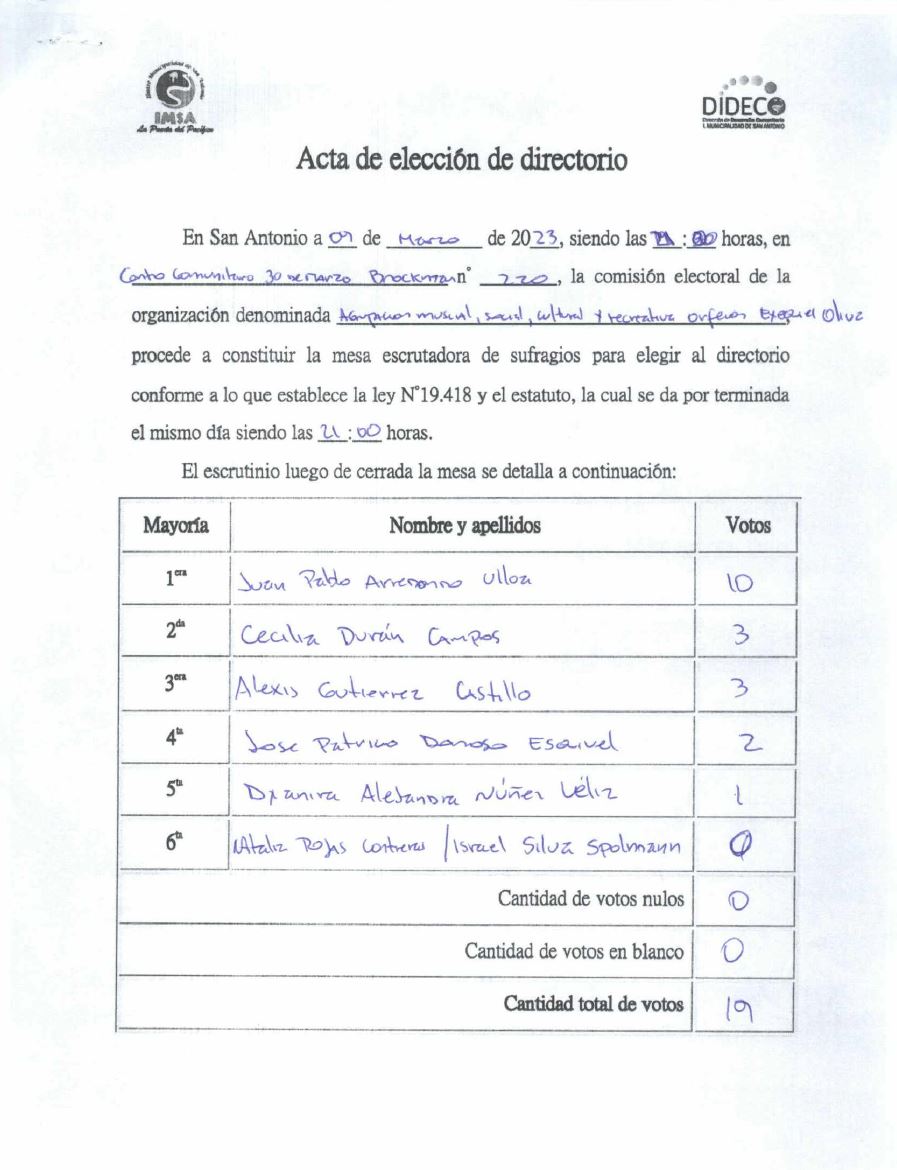 IMSA
La Puerta del Pacífico
DIDECO
Dirección de Desarrollo Comunitario
I. MUNICIPALIDAD DE SAN ANTONIO
Acta de elección de directorio
En San Antonio a 09 de Marzo de 2023, siendo las : horas, en
Centro Comunitario 30 de Marzo Brockmann n° 220, la comisión electoral de la
organización denominada Agrupacion musical, social, cultural y recreativa orfeon Exequiel Oliva
procede a constituir la mesa escrutadora de sufragios para elegir al directorio
conforme a lo que establece la ley N°19.418 y el estatuto, la cual se da por terminada
el mismo día siendo las 21:00 horas.
El escrutinio luego de cerrada la mesa se detalla a continuación:
Mayoría Nombre y apellidos Votos
1era Juan Pablo Arredondo Ulloa 10
2da Cecilia Durán Campos 3
3era Alexis Gutierrez Castillo 3
4ta Jose Patricio Donoso Esquivel 2
5ta Dyanira Alejandra Núñez Véliz 1
6ta Natalia Rojas Contreras / Israel Silva Spolmann 0
Cantidad de votos nulos 0
Cantidad de votos en blanco 0
Cantidad total de votos 19